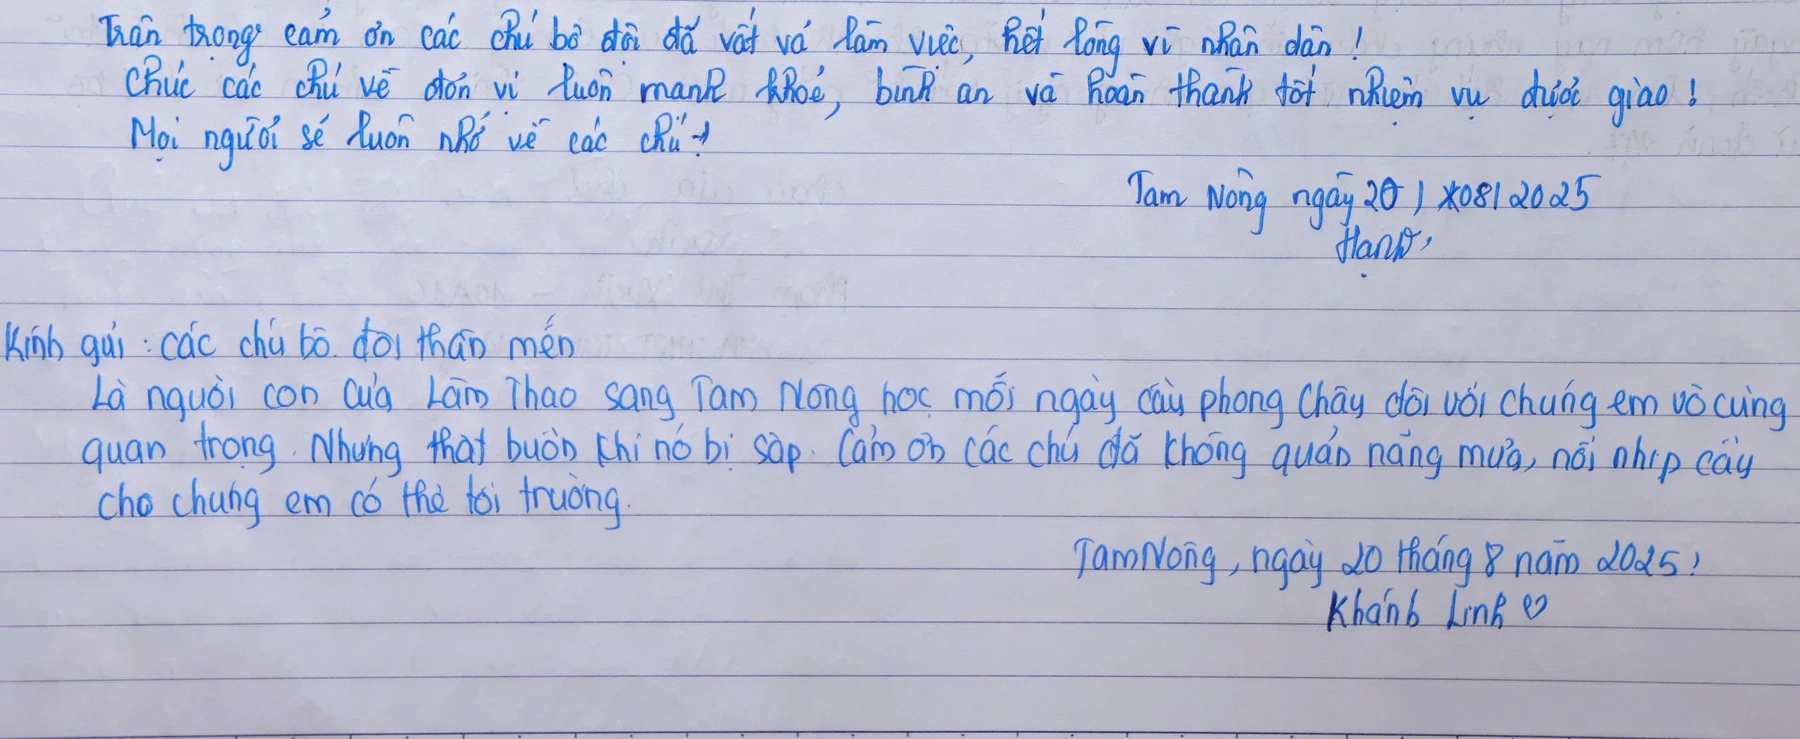 Trân trọng cảm ơn các chú bộ đội đã vất vả làm việc, hết lòng vì nhân dân!
Chúc các chú về đơn vị luôn mạnh khoẻ, bình an và hoàn thành tốt nhiệm vụ được giao!
Mọi người sẽ luôn nhớ về các chú!
Tam Nông ngày 20/08/2025
Hạnh
Kính gửi: các chú bộ đội thân mến
Là người con của Lâm Thao sang Tam Nông học mỗi ngày cầu phong Châu đối với chúng em vô cùng
quan trọng. Nhưng thật buồn khi nó bị sập. Cảm ơn các chú đã không quản nắng mưa, nối nhịp cầu
cho chúng em có thể tới trường.
Tam Nông, ngày 20 tháng 8 năm 2025
Khánh Linh ♡